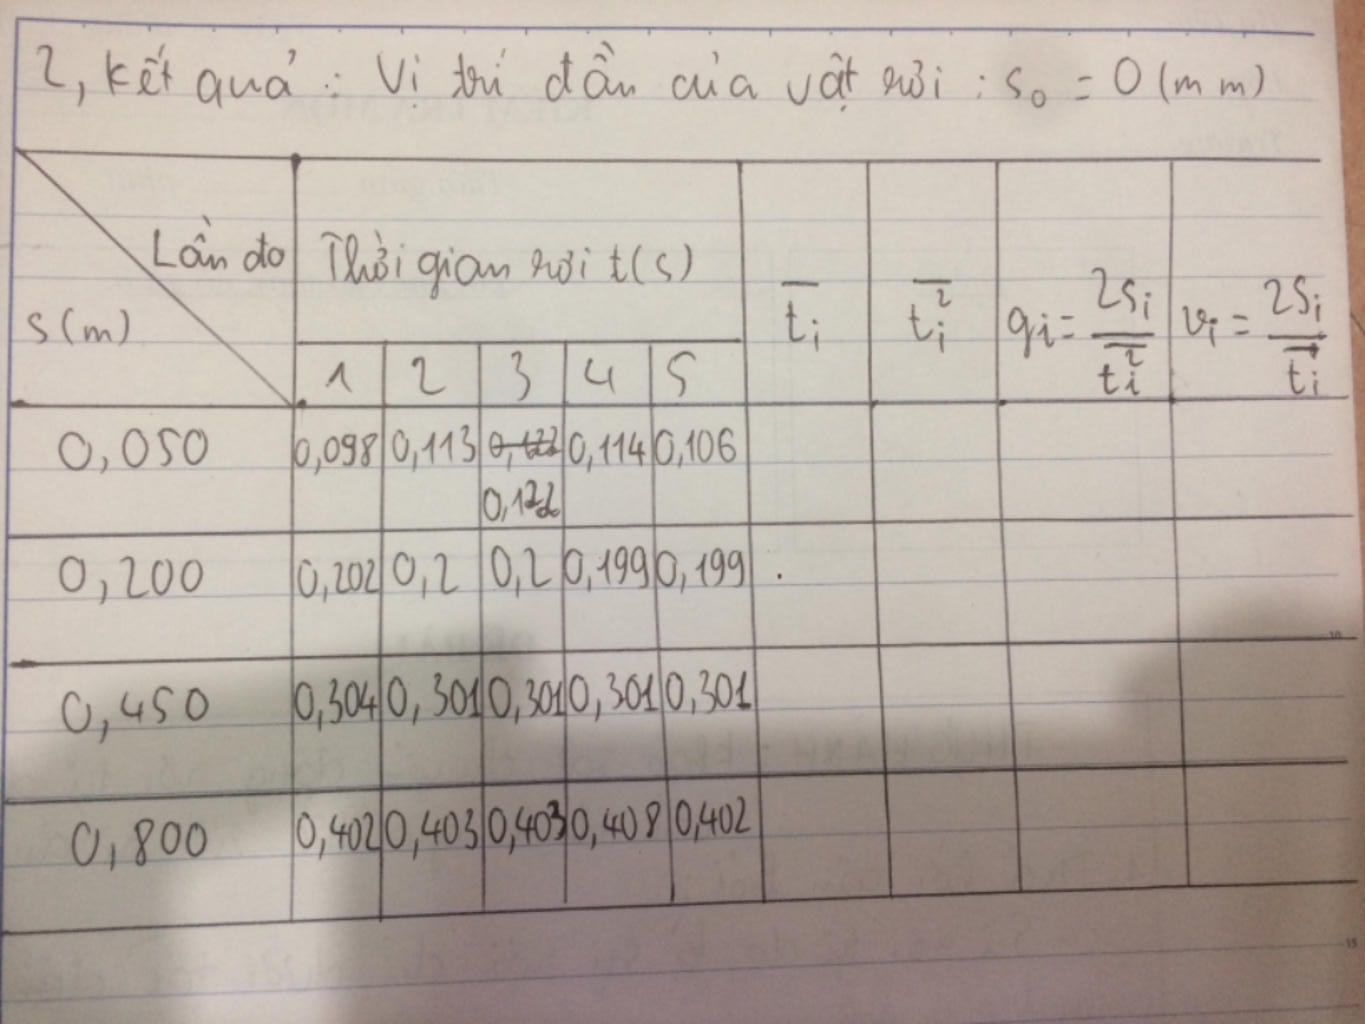 2, Kết quả : Vị trí đầu của vật rơi : s₀ = 0 (mm)
Lần đo
s (m)
Thời gian rơi t(s)
1 2 3 4 5
t̅ᵢ
t̅ᵢ²
gᵢ = 2Sᵢ / t̅ᵢ²
vᵢ = 2Sᵢ / t̅ᵢ
0,050 0,098 0,113 0,122 0,114 0,106
0,122
0,200 0,202 0,2 0,2 0,199 0,199
0,450 0,304 0,301 0,301 0,301 0,301
0,800 0,402 0,403 0,403 0,408 0,402
10
15